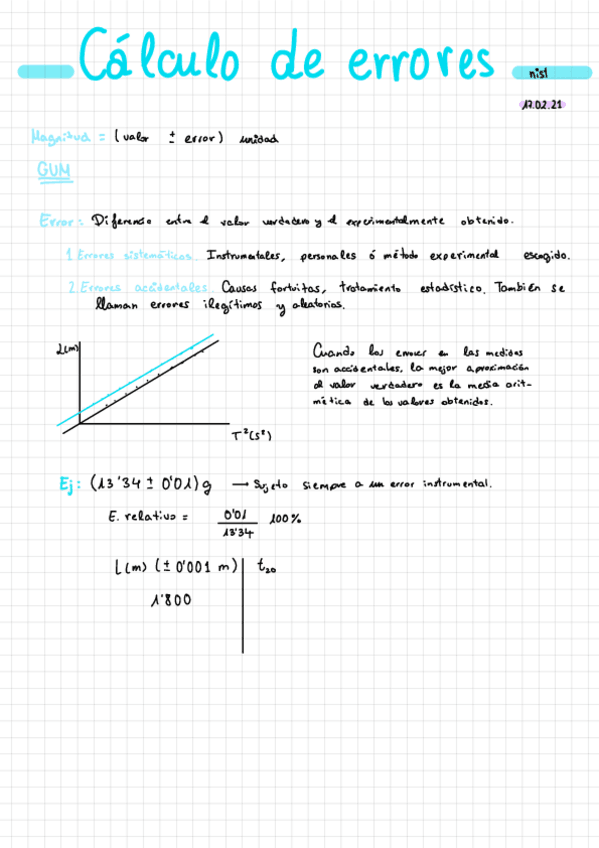 Cálculo de errores
nist
17.02.21
Magnitud = (valor ± error) unidad
GUM
Error: Diferencia entre el valor verdadero y el experimentalmente obtenido.
1. Errores sistemáticos. Instrumentales, personales ó método experimental escogido.
2. Errores accidentales. Causas fortuitas, tratamiento estadístico. También se
llaman errores ilegítimos y aleatorios.
L(m)
T²(s²)
Cuando los errores en las medidas
son accidentales, la mejor aproximación
al valor verdadero es la media arit-
mética de los valores obtenidos.
Ej: (13'34 ± 0'01) g → Sujeto siempre a un error instrumental.
E. relativo = 0'01 / 13'34 100%
L(m) (± 0'001 m) | t₂₀
1'800